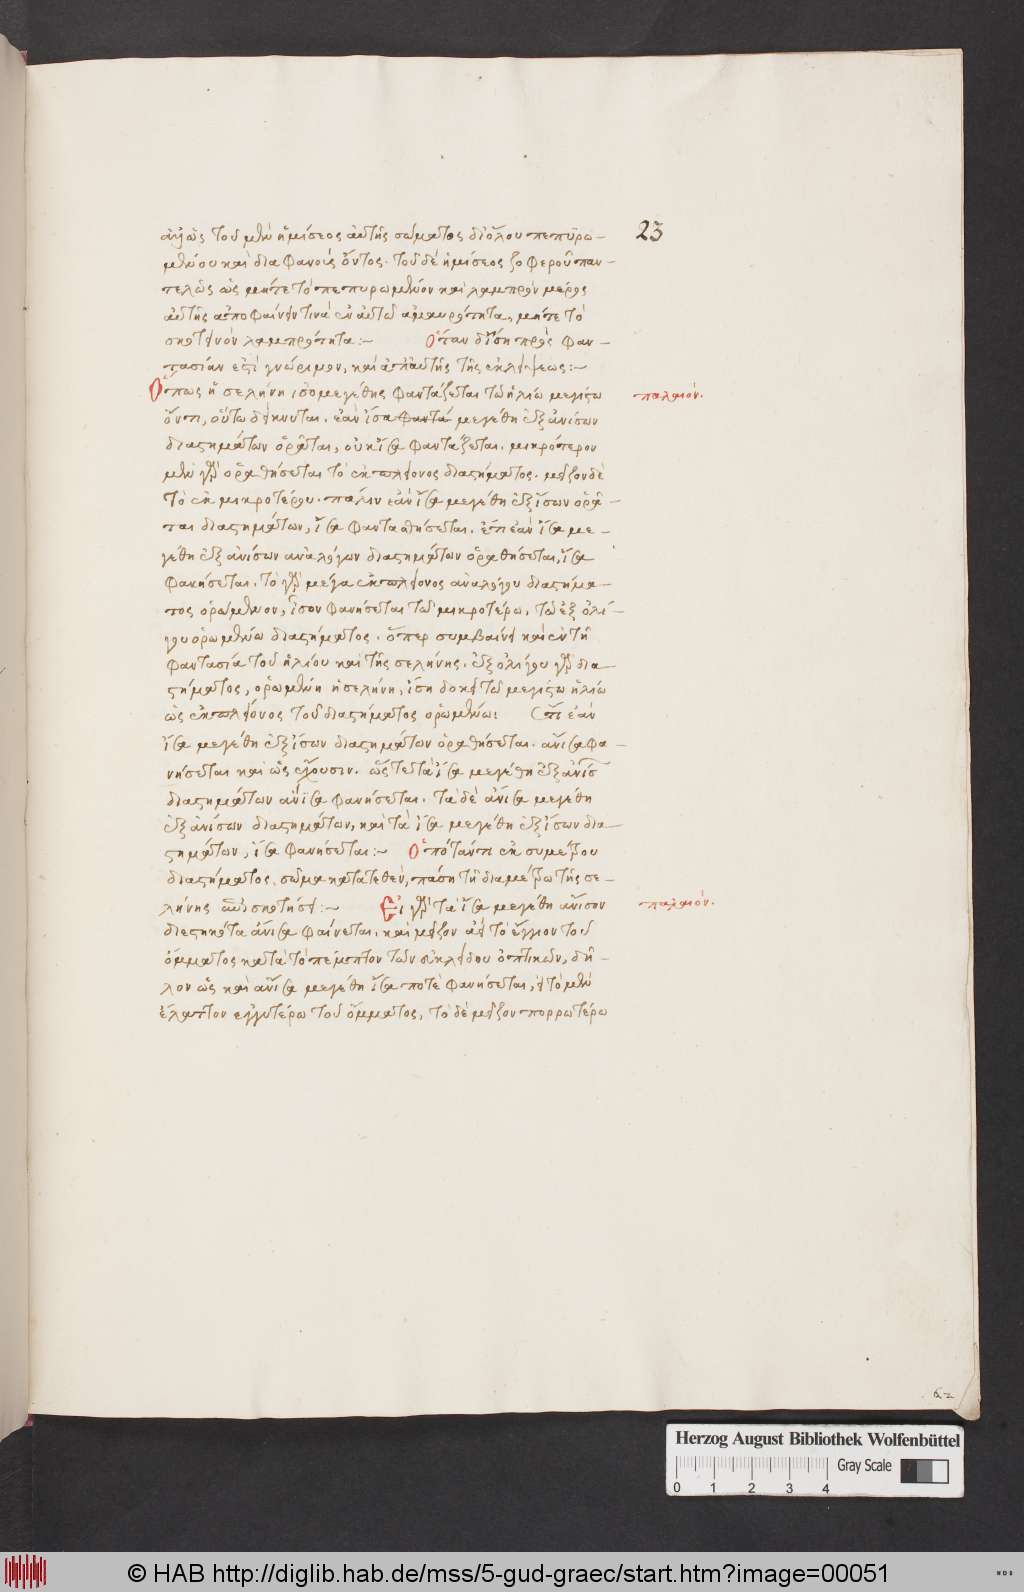 23
τοῦ μὲν ἡμίσεος αὐτῆς σώματος διόλου πεπυρω-
μένου καὶ διαφανοῦς ὄντος. τοῦ δὲ ἡμίσεος ζοφεροῦ παν-
τελῶς ὡς μήτε τὸ πεπυρωμένον καὶ λαμπρὸν μέρος
αὐτῆς ἀποφαίνειν τινὰ ἐν αὐτῷ ἀμαυρότητα, μήτε τὸ
σκοτεινὸν λαμπρότητα:~ Ὅταν δύσῃ πρὸς φαν-
τασίαν ἐστὶ γνώριμον, καὶ ἀπ' αὐτῆς τῆς ἐκλείψεως:~
Ὅπως ἡ σελήνη ἰσομεγέθης φαντάζεται τῷ ἡλίῳ μεγίστῳ
παλαιόν.
ὄντι, οὕτω δείκνυται. ἐὰν ἴσα φαντά μεγέθη ἐξ ἀνίσων
διαστημάτων ὁρᾶται, οὐκ ἴσα φαντάζεται. μικρότερον
μὲν γὰρ ὁραθήσεται τὸ ἐκ πλείονος διαστήματος. μεῖζον δὲ
τὸ ἐκ μικροτέρου. πάλιν ἐὰν ἴσα μεγέθη ἐξ ἴσων ὁρᾶ-
ται διαστημάτων, ἴσα φαντασθήσεται. ἔτι ἐὰν ἴσα με-
γέθη ἐξ ἀνίσων ἀναλόγων διαστημάτων ὁραθήσεται, ἴσα
φανήσεται. τὸ γὰρ μέγα ἐκ πλείονος ἀναλόγου διαστήμα-
τος ὁρώμενον, ἴσον φανήσεται τῷ μικροτέρῳ, τῷ ἐξ ὀλί-
γου ὁρωμένῳ διαστήματος. ὅπερ συμβαίνει καὶ ἐν τῇ
φαντασίᾳ τοῦ ἡλίου καὶ τῆς σελήνης. ἐξ ὀλίγου γὰρ δια-
στήματος, ὁρωμένη ἡ σελήνη, ἴση δοκεῖ τῷ μεγίστῳ ἡλίῳ
ὡς ἐκ πλείονος τοῦ διαστήματος ὁρωμένῳ: ἔτι ἐὰν
ἴσα μεγέθη ἐξ ἴσων διαστημάτων ὁραθήσεται. ἄνισα φα-
νήσεται καὶ ὡς ἔχουσιν. ὥστε τὰ ἴσα μεγέθη ἐξ ἀνίσ
διαστημάτων ἄνισα φανήσεται. τὰ δὲ ἄνισα μεγέθη
ἐξ ἀνίσων διαστημάτων, καὶ τὰ ἴσα μεγέθη ἐξ ἴσων δια-
στημάτων, ἴσα φανήσεται:~ Ὁπόταν τι ἐκ συμμέτρου
διαστήματος, σῶμα κατατεθέν, πάσῃ τῇ διαμέτρῳ τῆς σε-
λήνης ἐπισκοτήσει:~ Εἰ γὰρ τὰ ἴσα μεγέθη ἄνισον
παλαιόν.
διεστηκότα ἄνισα φαίνεται, καὶ μεῖζον ἀεὶ τὸ ἔγγιον τοῦ
ὄμματος κατὰ τὸ πέμπτον τῶν εὐκλείδου ὀπτικῶν, δῆ-
λον ὡς καὶ ἄνισα μεγέθη ἴσα ποτὲ φανήσεται, εἰ τὸ μὲν
ἔλαττον ἐγγυτέρω τοῦ ὄμματος, τὸ δὲ μεῖζον πορρωτέρω
62
Herzog August Bibliothek Wolfenbüttel
Gray Scale
0 1 2 3 4
© HAB http://diglib.hab.de/mss/5-gud-graec/start.htm?image=00051